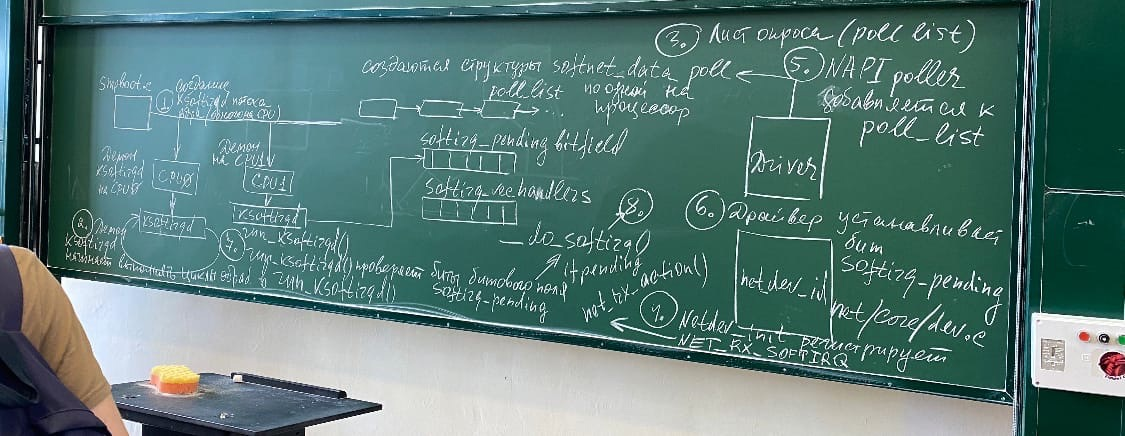 3. Лист опроса (poll list)
создаются структуры softnet_data poll
poll list по одной на
процессор
5. NAPI poller
добавляется к
poll_list
Driver
1. Создание
ksoftirqd потока
CPU)
Демон
ksoftirqd
на CPU0
CPU0
Демон
на CPU1
CPU1
ksoftirqd
ksoftirqd
softirq_pending bitfield
softirq_vec handlers
2. Демон
ksoftirqd
начинает выполнять циклы обраб в run_ksoftirqd()
4. run_ksoftirqd()
run_ksoftirqd() проверяет биты битового поля
softirq_pending
8.
__do_softirq()
if pending
net_rx_action()
6. Драйвер устанавливает
бит
softirq_pending
net/core/dev.c
Netdev_init регистрирует
NET_RX_SOFTIRQ